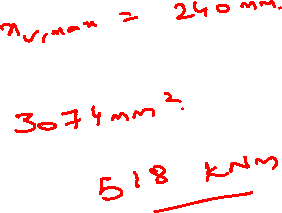 x_{v,max} = 240 mm.
3074 mm².
518 kNm